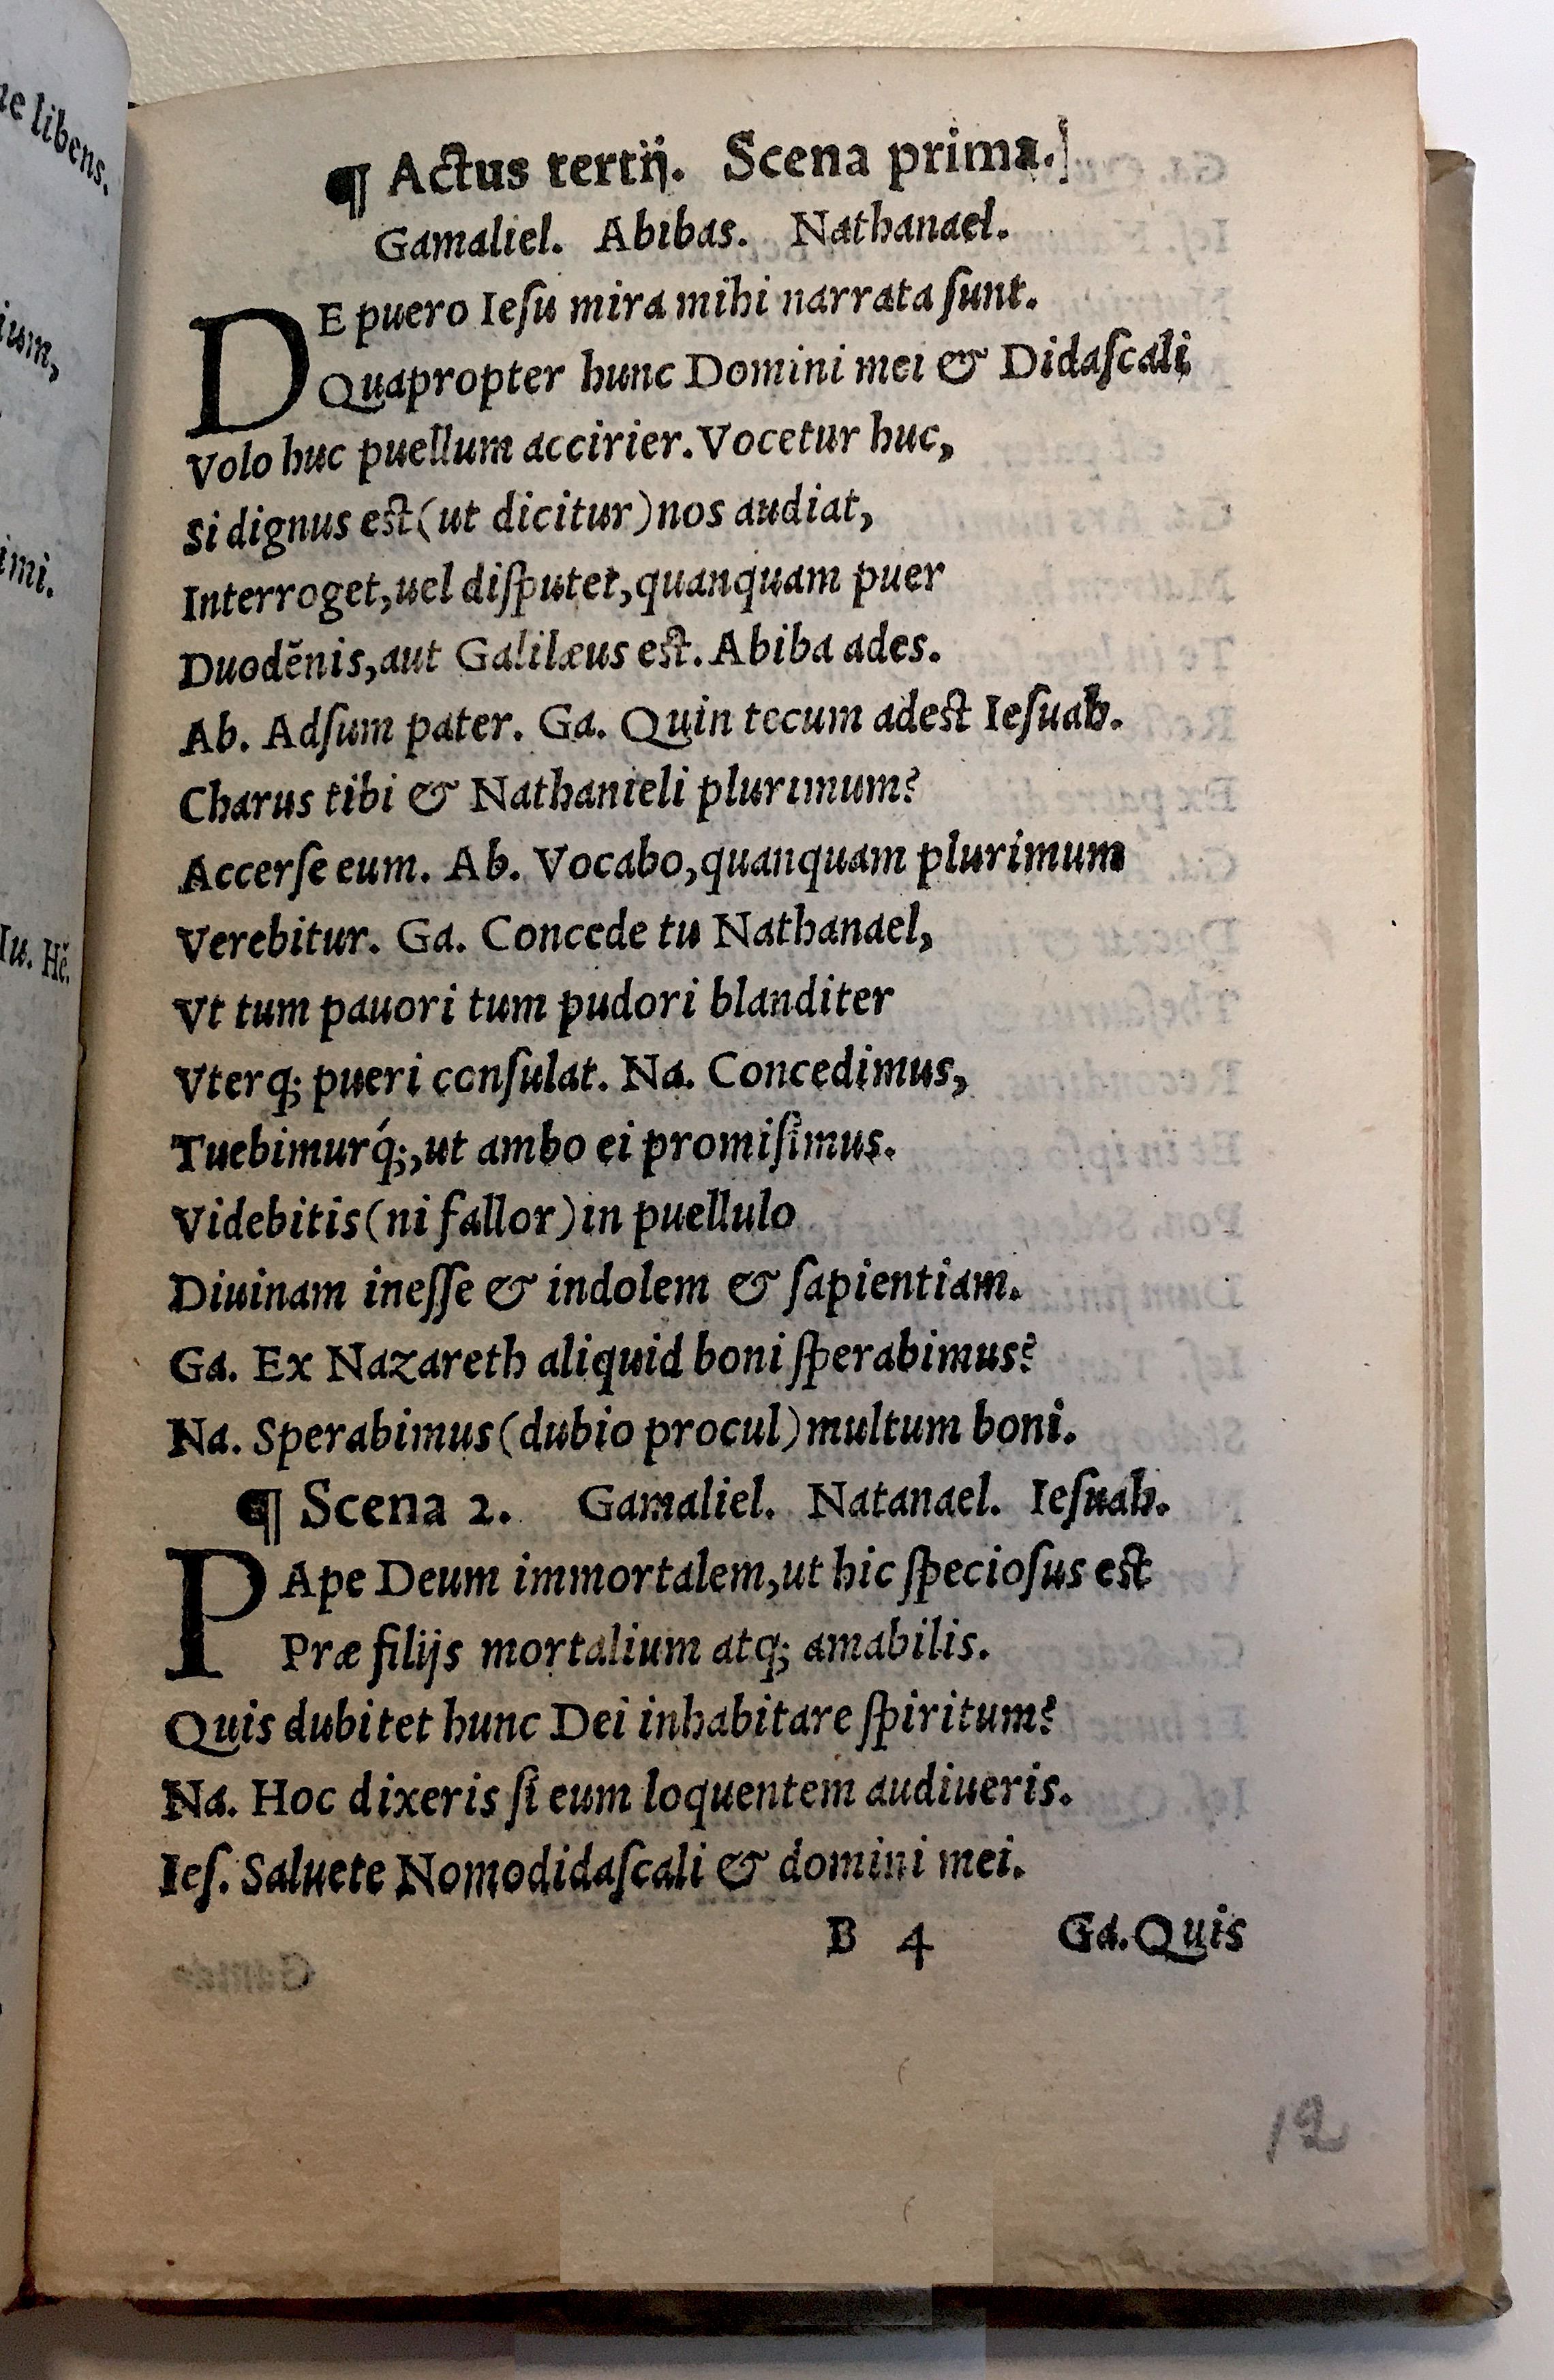 ue libens.
ium,
imi.
Iu. Hẽ.
¶ Actus tertij. Scena prima.
Gamaliel. Abibas. Nathanael.
DE puero Iesu mira mihi narrata sunt.
Quapropter hunc Domini mei & Didascali
Volo huc puellum accirier. Vocetur huc,
Si dignus est (ut dicitur) nos audiat,
Interroget, uel disputet, quanquam puer
Duodẽnis, aut Galilæus est. Abiba ades.
Ab. Adsum pater. Ga. Quin tecum adest Iesuah.
Charus tibi & Nathanieli plurimum?
Accerse eum. Ab. Vocabo, quanquam plurimum
Verebitur. Ga. Concede tu Nathanael,
Vt tum pauori tum pudori blanditer
Vterq; pueri consulat. Na. Concedimus,
Tuebimurq́;, ut ambo ei promisimus.
Videbitis (ni fallor) in puellulo
Diuinam inesse & indolem & sapientiam.
Ga. Ex Nazareth aliquid boni sperabimus?
Na. Sperabimus (dubio procul) multum boni.
¶ Scena 2. Gamaliel. Natanael. Iesuah.
PApe Deum immortalem, ut hic speciosus est
Præ filijs mortalium atq; amabilis.
Quis dubitet hunc Dei inhabitare spiritum?
Na. Hoc dixeris si eum loquentem audiueris.
Ies. Saluete Nomodidascali & domini mei.
B 4 Ga. Quis
12